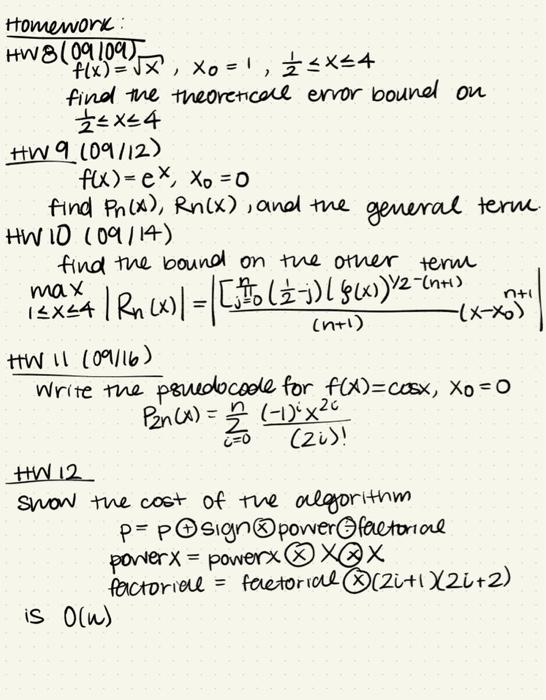 Homework:
HW8(09/09)
f(x)=√x, x₀=1, 1/2≤x≤4
find the theoreticale error bound on
1/2≤x≤4
HW9 (09/12)
f(x)=eˣ, x₀=0
find Pn(x), Rn(x), and the general term.
HW10 (09/14)
find the bound on the other term
max 1≤x≤4 |Rn(x)| = |[∏ⁿ j=0 (1/2-j)(ξ(x))^1/2-(n+1) / (n+1) (x-x₀)^n+1|
HW 11 (09/16)
Write the psuedocode for f(x)=cosx, x₀=0
P2n(x) = Σⁿ i=0 (-1)ⁱx²ⁱ / (2i)!
HW12
Show the cost of the algorithm
p= p⊕sign⊗power⊘factorial
powerx = powerx⊗X⊗X
factorial = factorial⊗(2i+1)(2i+2)
is O(n)